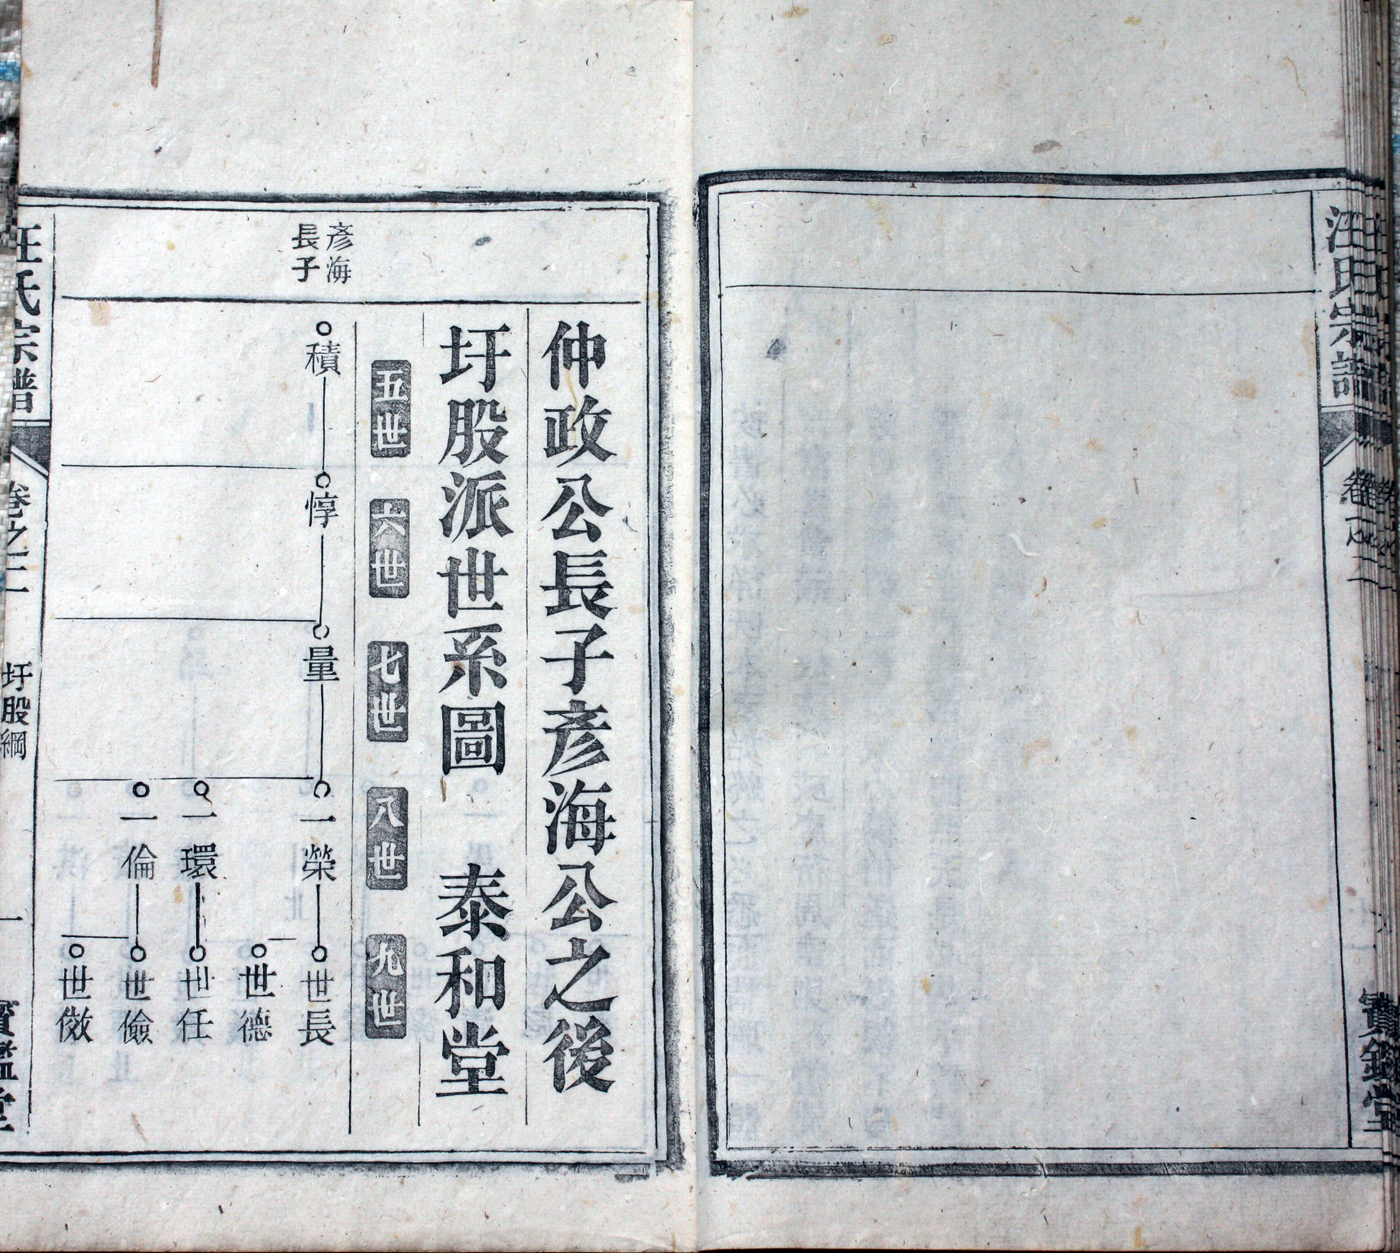 汪氏宗譜
卷之二
寶鑑堂
仲政公長子彥海公之後
圩股派世系圖 泰和堂
五世 六世 七世 八世 九世
彥海
長子
積 惇 量 一榮 世長
世德
一環 世任
一倫 世儉
世儆
汪氏宗譜
卷之二
圩股綱
一
寶鑑堂